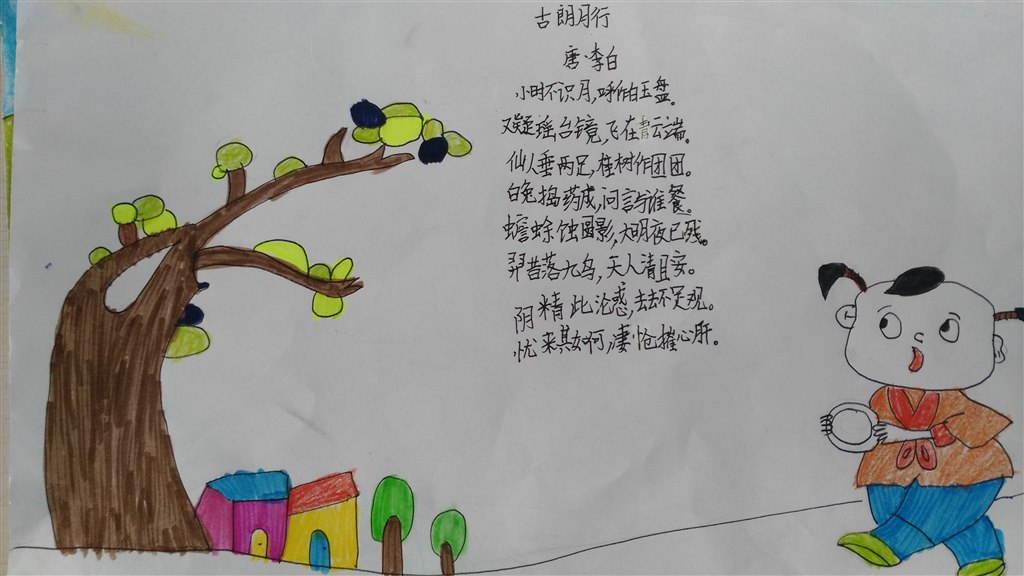 古朗月行
唐·李白
小时不识月,呼作白玉盘。
又疑瑶台镜,飞在青云端。
仙人垂两足,桂树作团团。
白兔捣药成,问言与谁餐。
蟾蜍蚀圆影,大明夜已残。
羿昔落九乌,天人清且安。
阴精此沦惑,去去不足观。
忧来其如何,凄怆摧心肝。